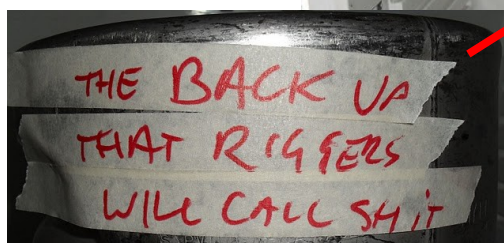 THE BACK UP
THAT RIGGERS
WILL CALL SHiT